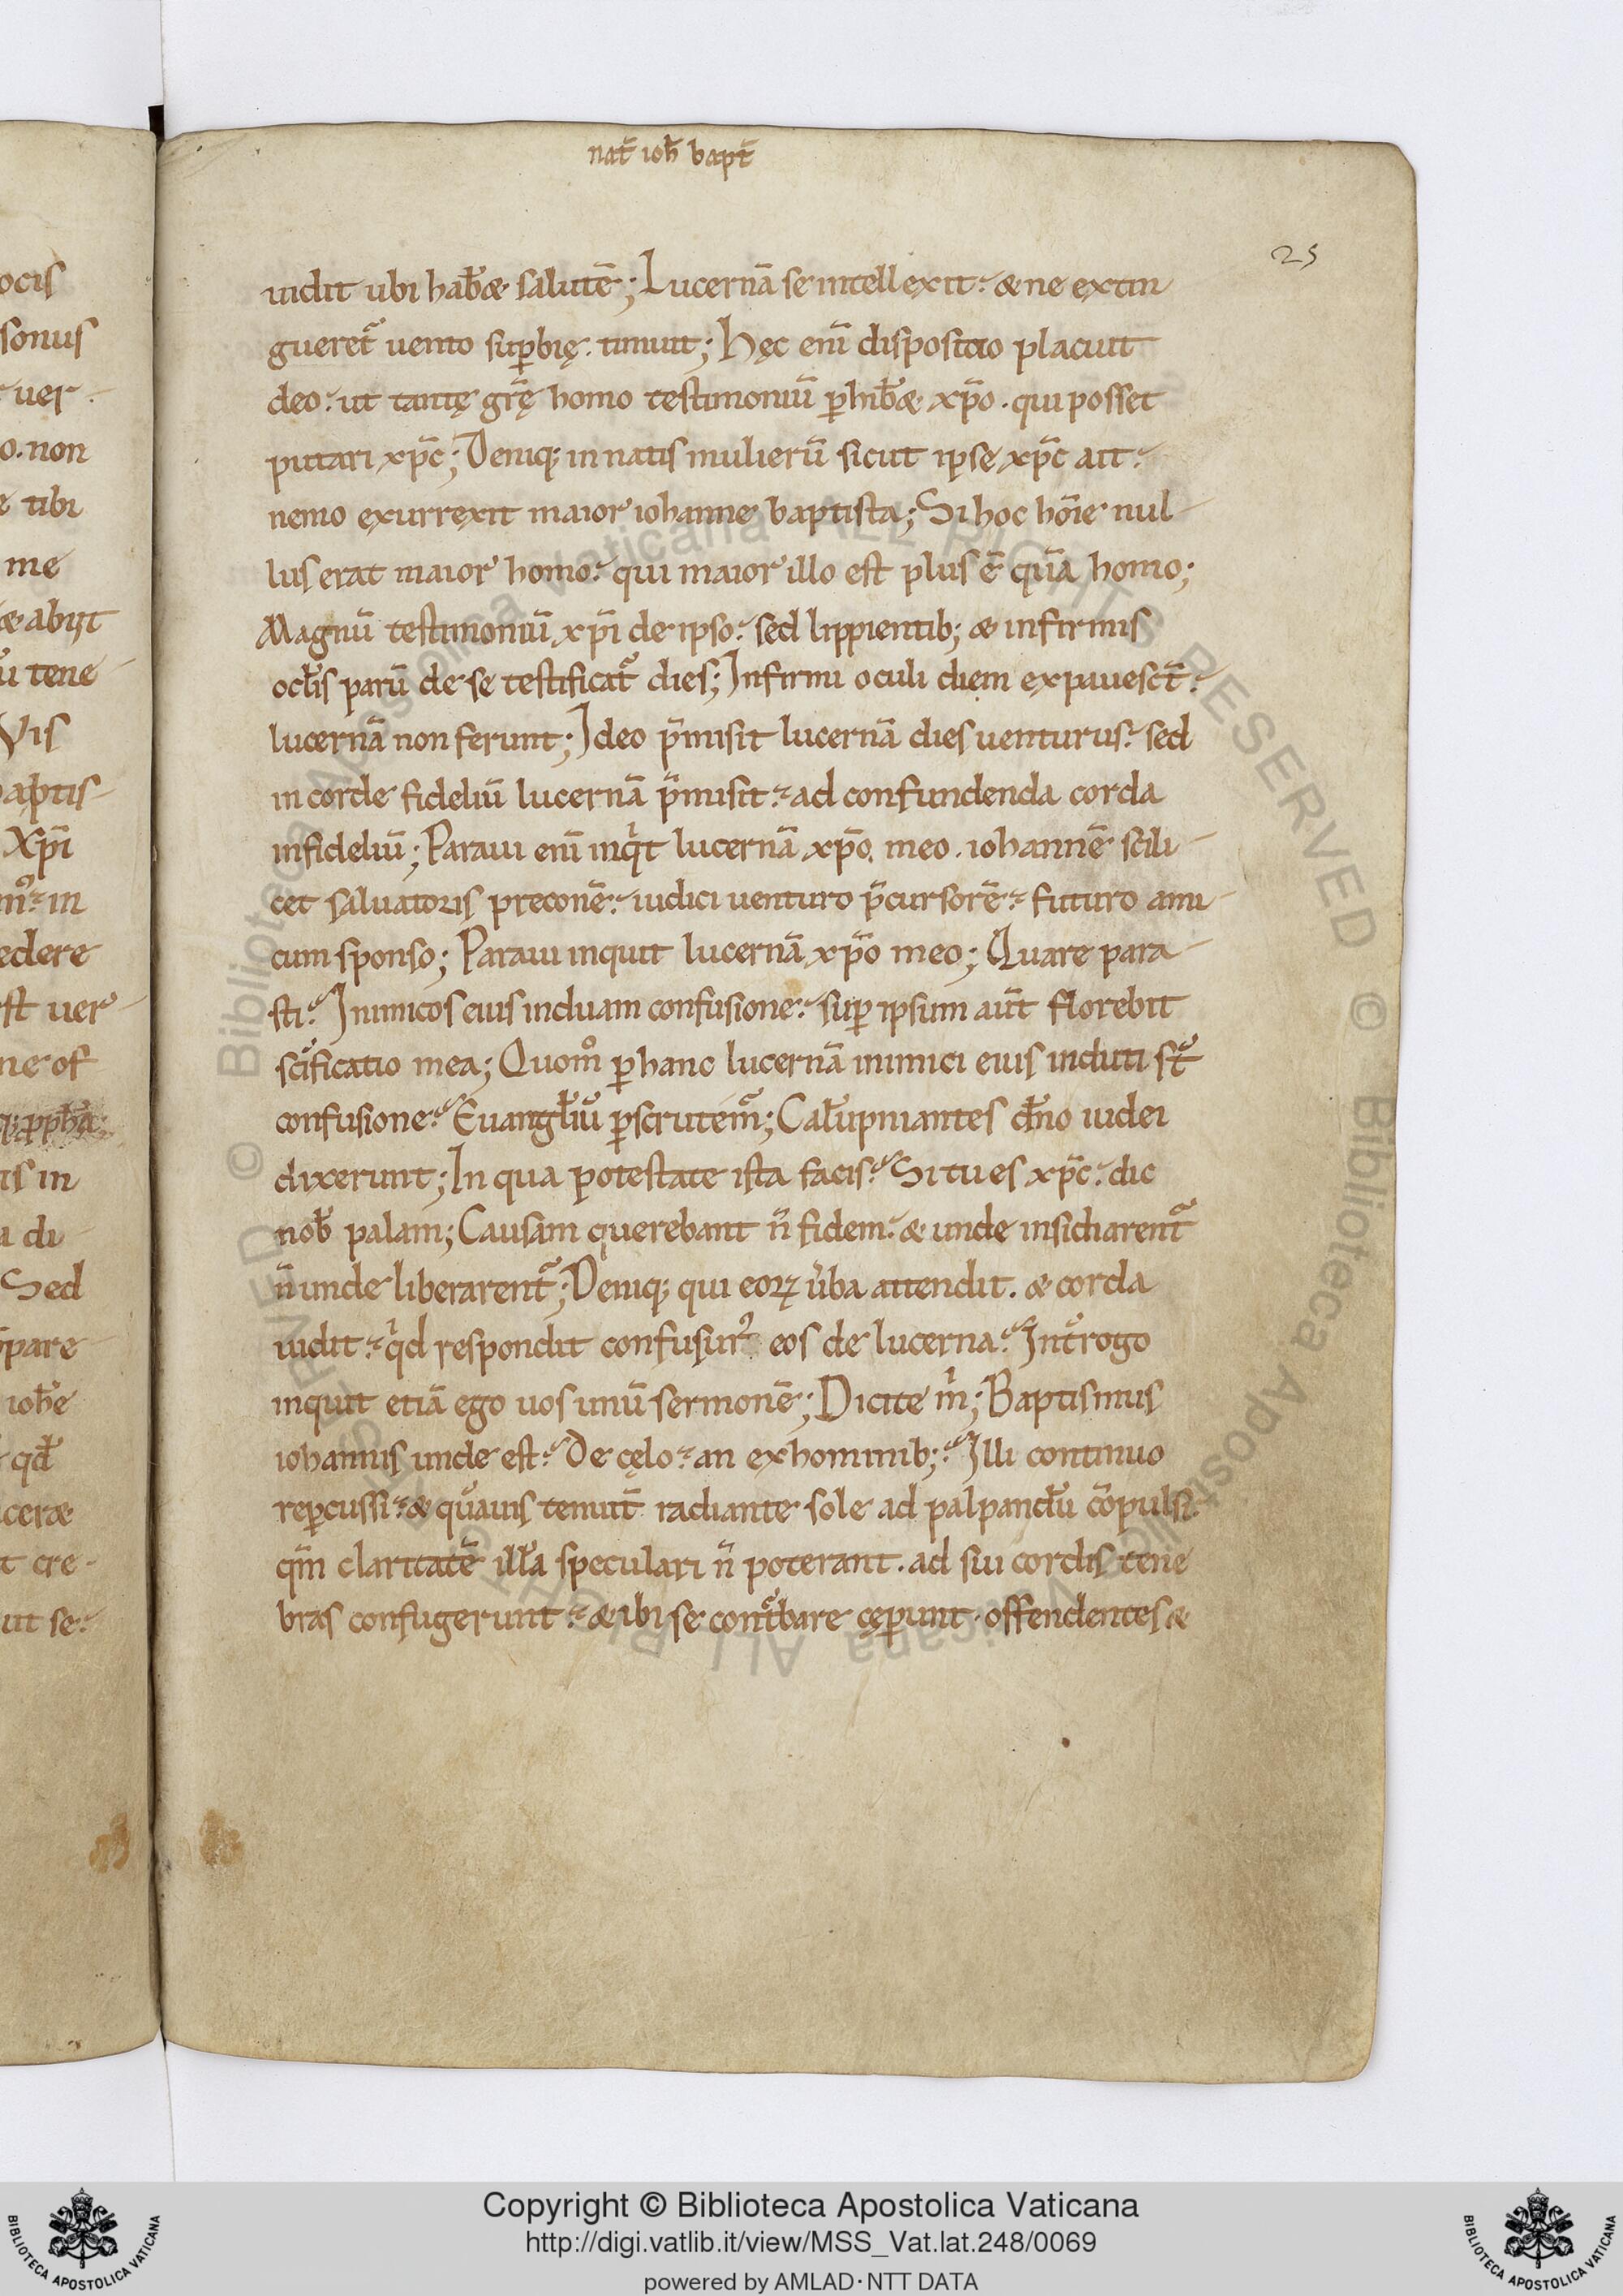 nat̄ ioh̄ bapt̄
25
uidit ubi hab&̄ salutē; Lucernā se intellexit. & ne extin
gueret᷑ uento sup̱bię. timuit; Hęc eni̅ dispositio placuit
deo. ut tantę gr̄ę homo testimoniū p̱hib&̄ xp̄o. qui posset
putari xp̄c; Deniq; in natis mulierū sicut ipse xp̄c ait.
nemo exurrexit maior iohanne baptista; Si hoc hōie nul-
lus erat maior homo. qui maior illo est plus ē quā homo;
Magnū testimoniū xp̄i de ipso. sed lippientib; & infirmis
ocl̄is parū de se testificat᷑ dies; Infirmi oculi diem expauesct̄.
lucernā non ferunt; Ideo p̄misit lucernā dies uenturus. sed
in corde fideliū lucernā p̄misit. ad confundenda corda
infideliū; Paraui eni̅ inqͥt lucernā xp̄o meo. iohannē scili-
cet saluatoris preconē. iudici uenturo p̄cursorē. futuro ami-
cum sponso; Paraui inquit lucernā xp̄o meo; Quare para-
sti. Inimicos eius induam confusione. sup̱ ipsum aut̄ florebit
sc̄ificatio mea; Quom̊ p̱ hanc lucernā inimici eius induti st̄
confusione. Euangl̄iū p̱scrutem᷑; Calūpniantes dn̄o iudei
dixerunt; In qua potestate ista facis. Si tu es xp̄c. dic
nob̄ palam; Causam querebant n̄ fidem. & unde insidiarent᷑
n̄ unde liberarent᷑; Deniq; qui eoꝝ ūba attendit. & corda
uidit. qͥd respondit confusurꝰ eos de lucerna. Int̄rogo
inquit etiā ego uos unū sermonē; Dicite m̍; Baptismus
iohannis unde est. De cęlo. an ex hominib;. Illi continuo
rep̱cussi. & quāuis tenuit̄ radiante sole ad palpandū cōpulsi.
qm̄ claritatē illā speculari n̄ poterant. ad sui cordis tene
bras confugerunt. & ibi se cont̄bare cęp̱unt. offendentes &
ocis
sonus
uer-
o. non
tibi
me
& abiit
ū tene-
Vis
aptis-
xp̄i
in
edere
st uer-
ne of
is in
a di-
Sed
pare-
qd̄
cer&
t cre-
ut se.
© Biblioteca Apostolica Vaticana ALL RIGHTS RESERVED
Copyright © Biblioteca Apostolica Vaticana
http://digi.vatlib.it/view/MSS_Vat.lat.248/0069
powered by AMLAD·NTT DATA
BIBLIOTECA APOSTOLICA VATICANA
BIBLIOTECA APOSTOLICA VATICANA